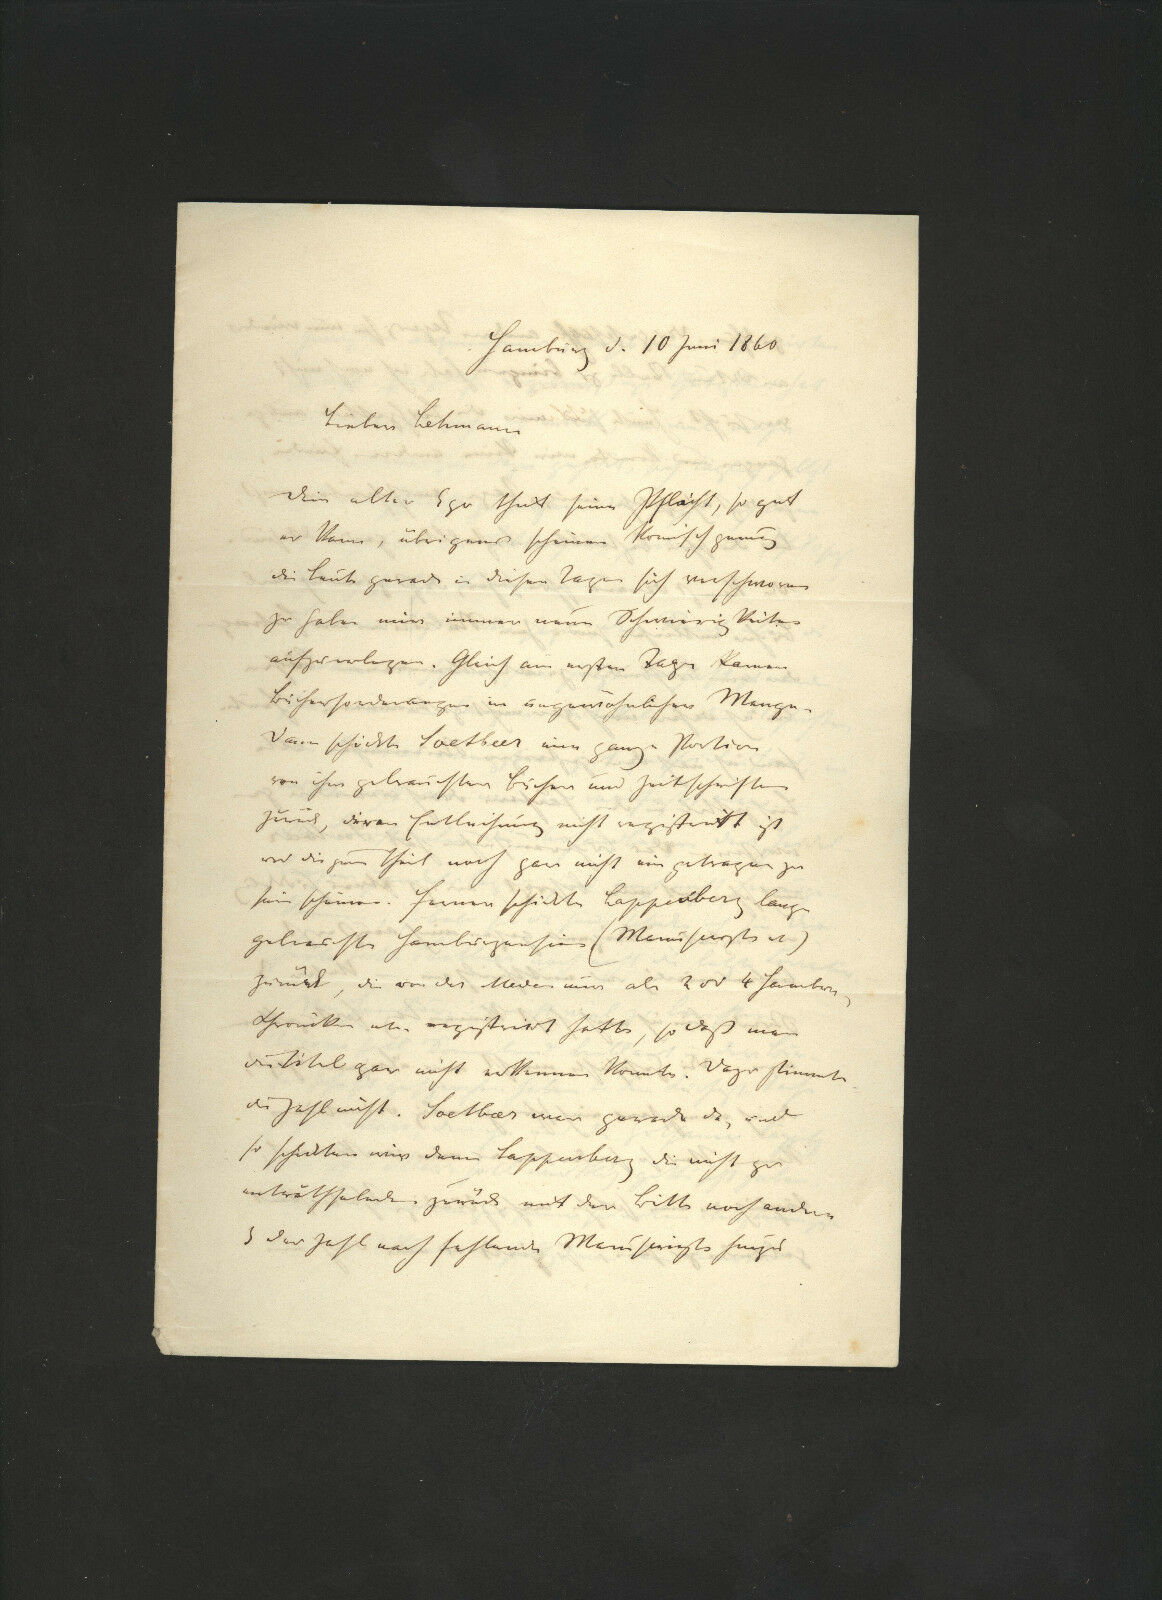 Hamburg d. 10 Juni 1860
Lieber Lehmann
Dein alter Ego thut seine Pflicht, so gut
er kann, übrigens scheinen komisch genug
die Leute gerade in diesen Tagen sich verschworen
zu haben mir immer neue Schwierigkeiten
aufzuerlegen. Gleich am ersten Tage kamen
Bücherforderungen in ungewöhnlicher Menge.
Dann schickte Soetbeer eine ganze Portion
von ihm gebrauchter Bücher und Zeitschriften
zurück, deren Entleihung nicht registrirt ist
und die zum Theil noch gar nicht eingetragen zu
sein scheinen. Ferner schickte Lappenberg lange
gebrauchte Hamburgensien (Manuscripte etc)
zurück, die von der Meden nur als 2 od 4 Hambur.
Chroniken etc. registrirt hatte, so daß man
die Titel gar nicht erkennen konnte. Dazu stimmte
die Zahl nicht. Soetbeer war gerade da, und
so schickten wir denn Lappenberg die nicht zu
enträthselnden zurück mit der Bitte noch andere
3 der Zahl nach fehlende Manuscripte hinzu